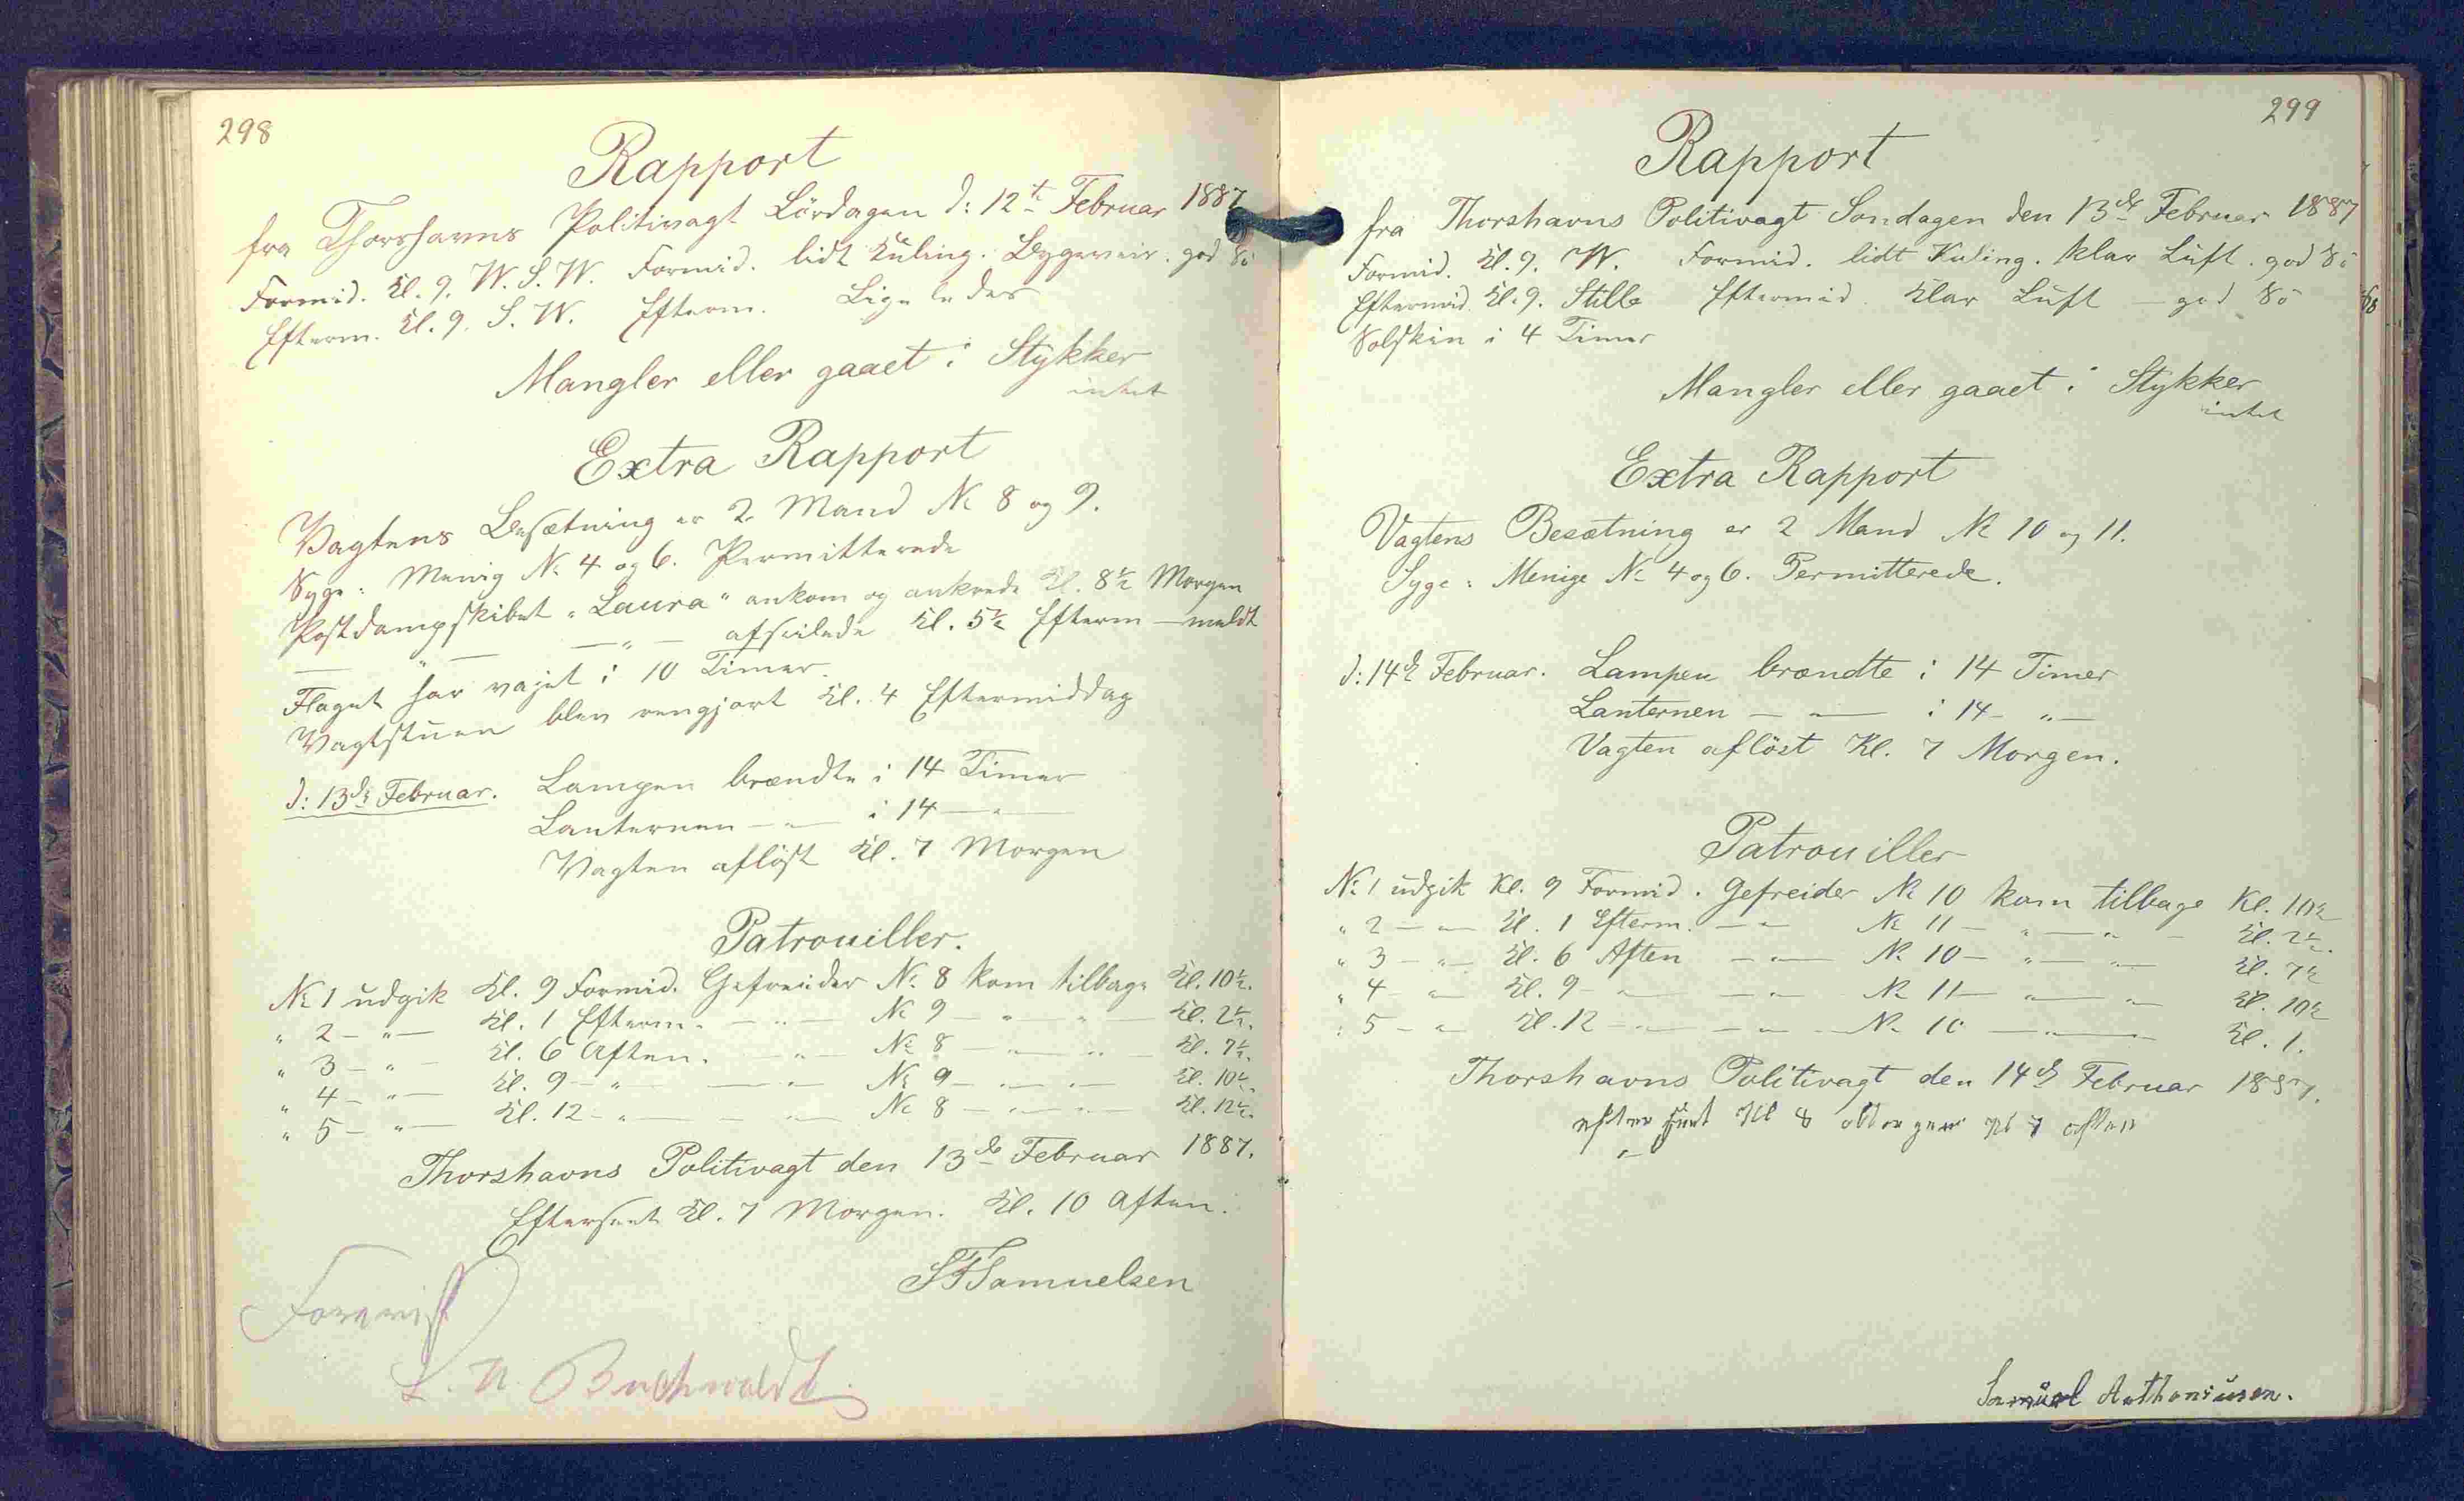 298
Rapport
fra Thorshavns Politivagt Lördagen d: 12te Februar 1887
Formid. Kl. 9. W. S. W. Formid. lidt Kuling. Bygeveir. god Sö
Efterm. Kl. 9. S. W. Efterm. Ligeledes
Mangler eller gaaet i Stykker
intet
Extra Rapport
Vagtens Besætning er 2 Mand No 8 og 9.
Syge: Menig No 4 og 6. Permitterede
Postdampskibet "Laura" ankom og ankrede Kl. 8½ Morgen
— " — — " — afseilede Kl. 5½ Efterm — meldt
Flaget har vajet i 10 Timer.
Vagtstuen blev rengjort Kl. 4 Eftermiddag
d: 13de Februar. Lampen brændte i 14 Timer
Lanternen — " — i 14 — " —
Vagten aflöst Kl. 7 Morgen
Patrouiller.
No 1 udgik Kl. 9 Formid. Gefreider No 8 kom tilbage Kl. 10½.
" 2 — " — Kl. 1 Efterm. — " — No 9 — " — " — Kl. 2½.
" 3 — " — Kl. 6 Aften. — " — No 8 — " — " — Kl. 7½.
" 4 — " — Kl. 9 — " — — " — No 9 — " — " — Kl. 10½.
" 5 — " — Kl. 12 — " — — " — No 8 — " — " — Kl. 12½.
Thorshavns Politivagt den 13de Februar 1887.
Efterseet Kl. 7 Morgen. Kl. 10 Aften.
Samuelsen
Forevist
L. N. Buchwaldt
299
Rapport
fra Thorshavns Politivagt Sondagen den 13de Februar 1887
Formid. Kl. 9. W. Formid. lidt Kuling. klar Luft. god Sö
Eftermid. Kl. 9. Stille Eftermid. Klar Luft — god Sö
Solskin i 4 Timer
Mangler eller gaaet i Stykker
intet
Extra Rapport
Vagtens Besætning er 2 Mand No 10 og 11.
Syge: Menige No 4 og 6. Permitterede.
d: 14de Februar. Lampen brændte i 14 Timer
Lanternen — " — i 14 — " —
Vagten aflöst Kl. 7 Morgen.
Patrouiller
No 1 udgik Kl. 9 Formid. Gefreider No 10 kom tilbage Kl. 10½
" 2 — " — Kl. 1 Efterm. — " — No 11 — " — " — Kl. 2½.
" 3 — " — Kl. 6 Aften — " — No 10 — " — " — Kl. 7½
" 4 — " — Kl. 9 — " — — " — No 11 — " — " — Kl. 10½
" 5 — " — Kl. 12 — " — — " — No 10 — " — Kl. 1.
Thorshavns Politivagt den 14de Februar 1887.
Kl 8 Kl 7 aften
Samuel